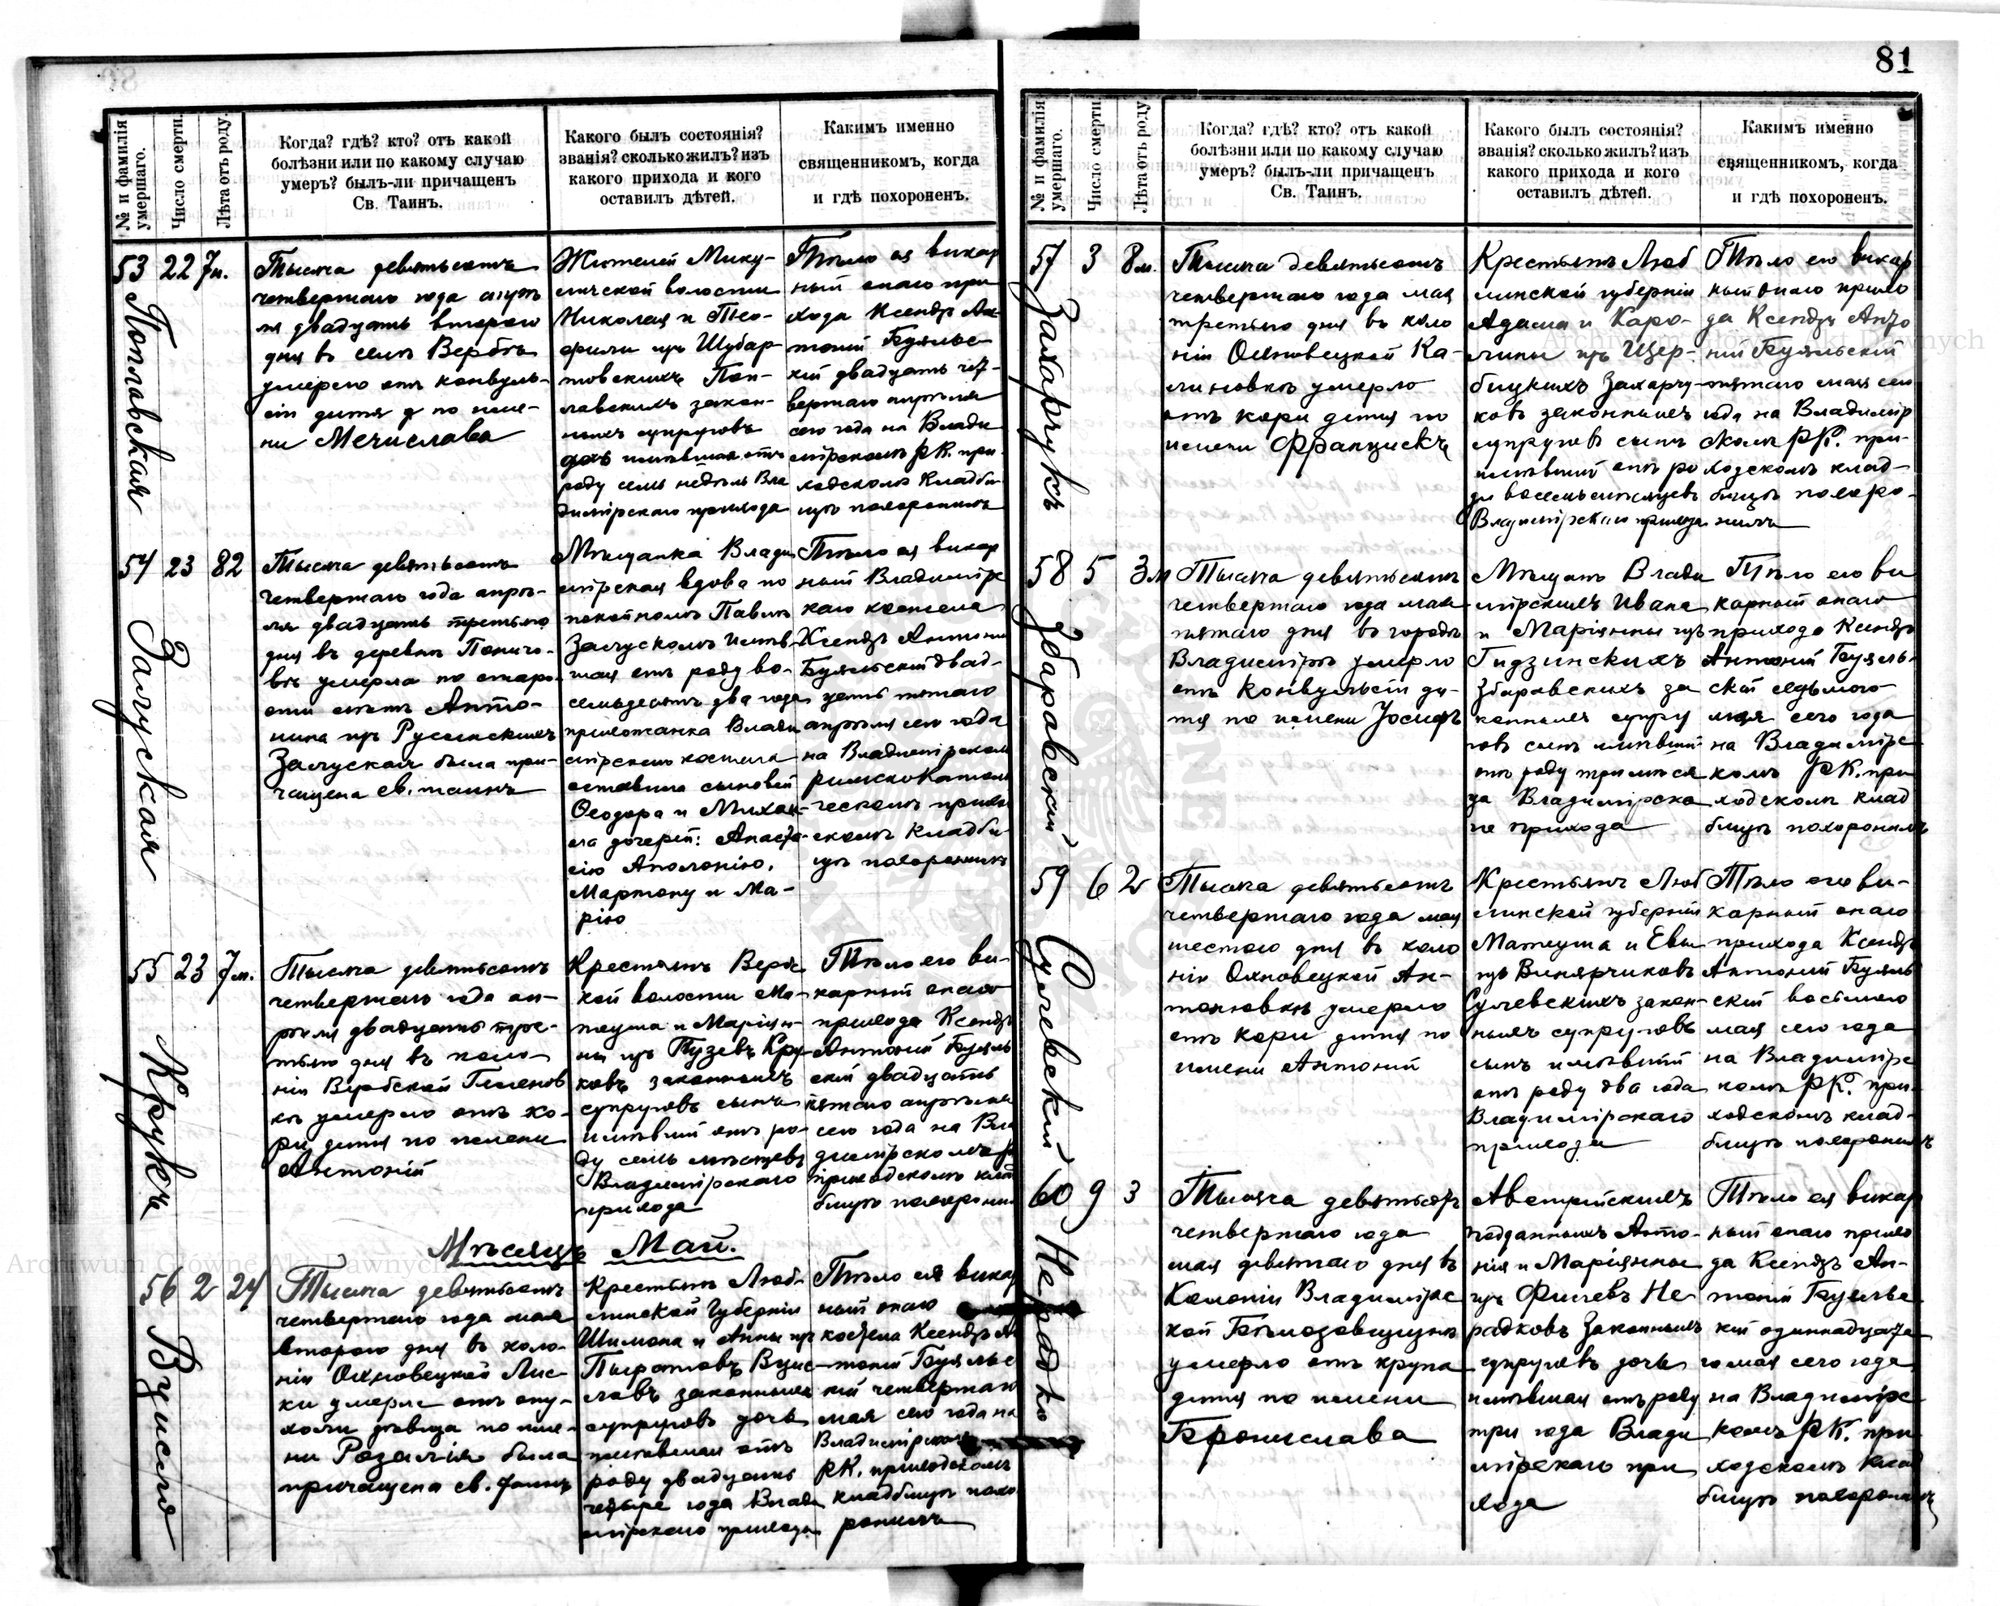 81
№ и фамилія умершаго.
Число смерти.
Лѣта отъ роду.
Когда? гдѣ? кто? отъ какой
болѣзни или по какому случаю
умеръ? былъ-ли причащенъ
Св. Таинъ.
Какого былъ состоянія?
званія? сколько жилъ? изъ
какого прихода и кого
оставилъ дѣтей.
Какимъ именно
священникомъ, когда
и гдѣ похороненъ.
53 22 7н.
Поплавская
Тысяча девятьсотъ
четвертаго года
двадцать второго
дня въ селѣ Верба
умерло отъ конвуль-
сіи дитя по име-
ни Мечислава
Жителей Мику-
личской волости
Николая и
Поп-
лавскихъ закон-
ныхъ супруговъ
дочь имѣвшая отъ
роду семь недѣль Вла
димірскаго прихода
Тѣло ея викар
ный онаго при
хода Ксендзъ Ан
тоній Буяльс
кій двадцать чет-
вертаго апрѣля
сего года на Влади
мірскомъ РК. при-
ходскомъ кладби
щѣ похоронилъ
54 23 82
Залуская
Тысяча девятьсотъ
четвертаго года апрѣ-
ля двадцать третьяго
дня въ деревнѣ
умерла по старо-
сти лѣтъ Анто-
нина изъ
Залуская была при-
чащена св. таинъ
Мѣщанка Влади
мірская вдова по
покойномъ Павлѣ
Залускомъ имѣв-
шая отъ роду во-
семьдесятъ два года
прихожанка Влади
мірскаго костела
оставила сыновей
Ѳеодора и Михаи-
ла дочерей: Анаста-
сію Аполонію,
Мартону и Ма-
рію
Тѣло ея викар
ный Владимірс
каго костела
Ксендзъ Антоній
Буяльскій двад-
цать пятаго
апрѣля сего года
на Владимірскомъ
римскокатоли
ческомъ приход
скомъ кладби-
щѣ похоронилъ
55 23 7м.
Крукъ
Тысяча девятьсотъ
четвертаго года ап-
рѣля двадцать тре-
тьяго дня въ коло-
ніи Вербской
умерло отъ ко-
ри дитя по имени
Антоній
Крестьянъ Вербс
кой волости Ма-
теуша и Маріян-
ны изъ Пузевъ Кру-
ковъ законныхъ
супруговъ сынъ
имѣвшій отъ ро-
ду семь мѣсяцевъ
Владимірскаго
прихода
Тѣло его ви-
карный онаго
прихода Ксендзъ
Антоній Буяль
скій двадцать
пятаго апрѣля
сего года на Вла
димірскомъ
приходскомъ клад
бищѣ похоронилъ
Мѣсяцъ Май.
56 2 24
Вуйсло
Тысяча девятьсотъ
четвертаго года мая
второго дня въ коло-
ніи Охновецкой Лис
ки умерла отъ опу-
холи дѣвица по име-
ни Розалія была
причащена св. таинъ
Крестьянъ Люб-
линской губерніи
Шимона и Анны изъ
законныхъ
супруговъ дочь
имѣвшая отъ
роду двадцать
четыре года Влади
мірскаго прихода
Тѣло ея викар
ный онаго
костела Ксендзъ Ан
тоній Буяльс
кій четвертаго
мая сего года на
Владимірскомъ
РК. приходскомъ
кладбищѣ похо
ронилъ
№ и фамилія умершаго.
Число смерти.
Лѣта отъ роду.
Когда? гдѣ? кто? отъ какой
болѣзни или по какому случаю
умеръ? былъ-ли причащенъ
Св. Таинъ.
Какого былъ состоянія?
званія? сколько жилъ? изъ
какого прихода и кого
оставилъ дѣтей.
Какимъ именно
священникомъ, когда
и гдѣ похороненъ.
57 3 8м.
Захарчукъ
Тысяча девятьсотъ
четвертаго года мая
третьяго дня въ коло
ніи Охновецкой Ка-
линовкѣ умерло
отъ кори дитя по
имени Францискъ
Крестьянъ Люб
линской губерніи
Адама и Каро-
лины изъ Щер-
бицкихъ Захарчу-
ковъ законныхъ
супруговъ сынъ
имѣвшій отъ ро
ду восемь мѣсяцевъ
Владимірскаго прихода
Тѣло его викар
ный онаго прихо
да Ксендзъ Анто
ній Буяльскій
пятаго мая сего
года на Владимір
скомъ РК. при-
ходскомъ клад-
бищѣ похоро-
нилъ
58 5 3м
Збаравскій
Тысяча девятьсотъ
четвертаго года мая
пятаго дня въ городѣ
Владимірѣ умерло
отъ конвульсіи ди-
тя по имени Іосифъ
Мѣщанъ Влади
мірскихъ Ивана
и Маріянны изъ
Гидзинскихъ
Збаравскихъ за
конныхъ супру
говъ сынъ имѣвшій
отъ роду три мѣся
ца Владимірска
го прихода
Тѣло его ви
карный онаго
прихода Ксендзъ
Антоній Буяль-
скій седьмого
мая сего года
на Владимірс
комъ РК. при
ходскомъ клад
бищѣ похоронилъ
59 6 2
Сулевскій
Тысяча девятьсотъ
четвертаго года мая
шестого дня въ коло
ніи Охновецкой Ан-
тоновкѣ умерло
отъ кори дитя по
имени Антоній
Крестьянъ Люб
линской губерніи
Матеуша и Евы
изъ Винярчиковъ
Сулевскихъ закон-
ныхъ супруговъ
сынъ имѣвшій
отъ роду два года
Владимірскаго
прихода
Тѣло его ви-
карный онаго
прихода Ксендзъ
Антоній Буяль
скій восьмого
мая сего года
на Владимірс
комъ РК. при-
ходскомъ клад-
бищѣ похоронилъ
60 9 3
Нерадко
Тысяча девятьсотъ
четвертаго года
мая девятаго дня въ
Колоніи Владимірс
кой
умерло отъ крупа
дитя по имени
Бронислава
Австрійскихъ
подданныхъ Анто-
нія и Маріянны
изъ Не
радковъ законныхъ
супруговъ дочь
имѣвшая отъ роду
три года Влади
мірскаго при
хода
Тѣло ея викар
ный онаго прихо
да Ксендзъ Ан-
тоній Буяльс
кій одиннадцата
го мая сего года
на Владимірс
комъ РК. при
ходскомъ клад
бищѣ похоронилъ
Archiwum Główne Akt Dawnych